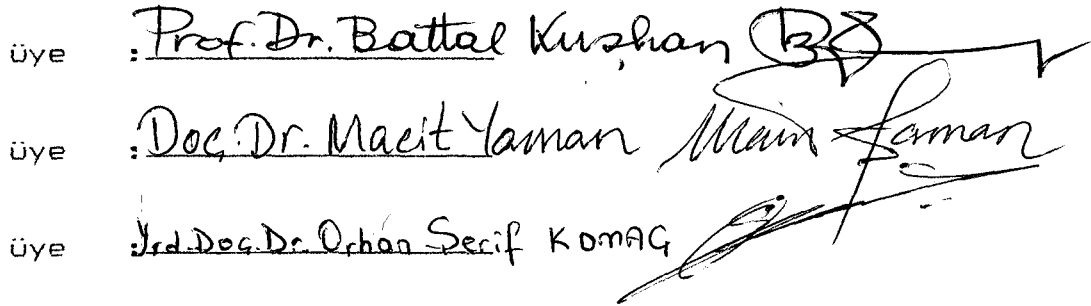 üye : Prof. Dr. Battal Kuşhan
üye : Doç. Dr. Macit Yaman
üye : Yrd. Doç. Dr. Orhan Serif KOMAG